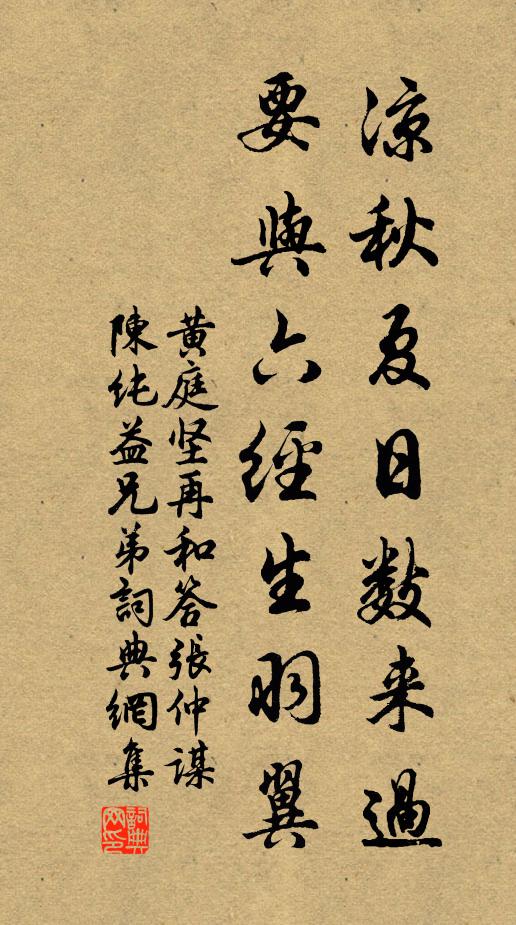 凉秋夏日数来過
要與六經生羽翼
黄庭坚再和答張仲謀
陳純益兄弟詞典網集
詞典网印